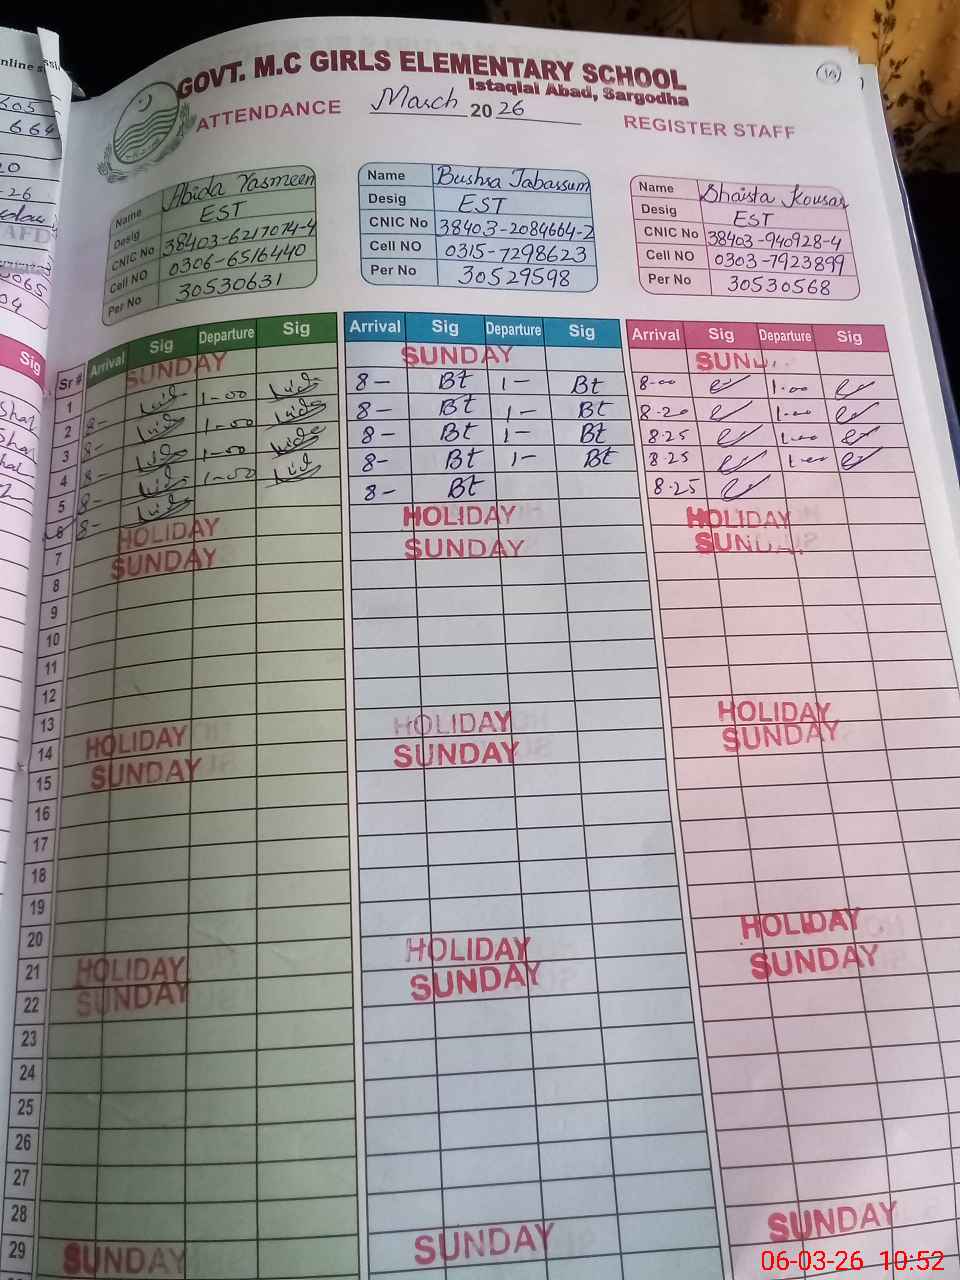 GOVT. M.C GIRLS ELEMENTARY SCHOOL
Istaqlal Abad, Sargodha
16
ATTENDANCE March 2026 REGISTER STAFF
Name Abida Yasmeen
Desig EST
CNIC No 38403-6217074-4
Cell NO 0306-6516440
Per No 30530631
Name Bushra Tabassum
Desig EST
CNIC No 38403-2084664-2
Cell NO 0315-7298623
Per No 30529598
Name Shaista Kousar
Desig EST
CNIC No 38403-940928-4
Cell NO 0303-7923899
Per No 30530568
Sr # Arrival Sig Departure Sig Arrival Sig Departure Sig Arrival Sig Departure Sig
1 SUNDAY SUNDAY SUND
2 8- 1-00 8- Bt 1- Bt 8-00 1.00
3 8- 1-00 8- Bt 1- Bt 8-20 1.00
4 8- 1-00 8- Bt 1- Bt 8.25 1.00
5 8- 1-00 8- Bt 1- Bt 8.25 1.00
6 8- 8- Bt 8.25
7 HOLIDAY HOLIDAY HOLIDAY
8 SUNDAY SUNDAY SUNDAY
9
10
11
12
13
14 HOLIDAY HOLIDAY HOLIDAY
15 SUNDAY SUNDAY SUNDAY
16
17
18
19
20
21 HOLIDAY HOLIDAY HOLIDAY
22 SUNDAY SUNDAY SUNDAY
23
24
25
26
27
28
29 SUNDAY SUNDAY SUNDAY
06-03-26 10:52